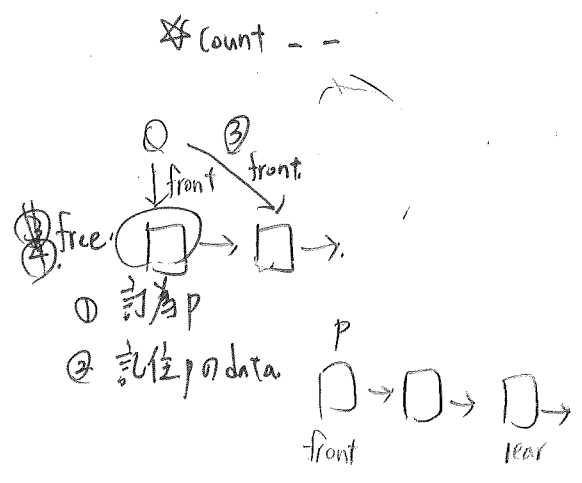 ☆ Count - -
③
front
front.
④. free.
① 訂為p
② 記住pのdata.
p
front
rear